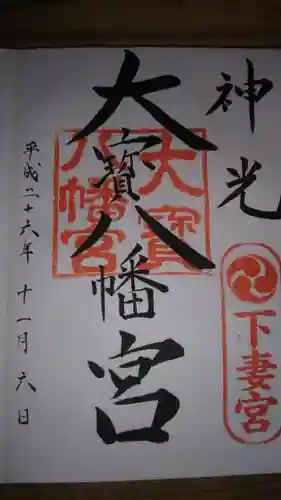 神光
下妻宮
大寳八幡宮
大寳
八幡宮
平成二十六年 十一月 六日